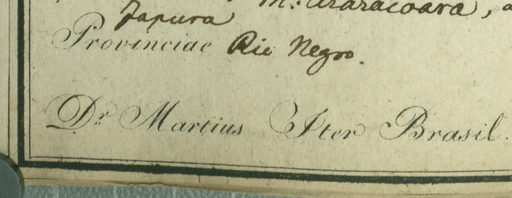 Japura M. Araracoara,
Provinciae Rio Negro.
Dr. Martius Iter Brasil.